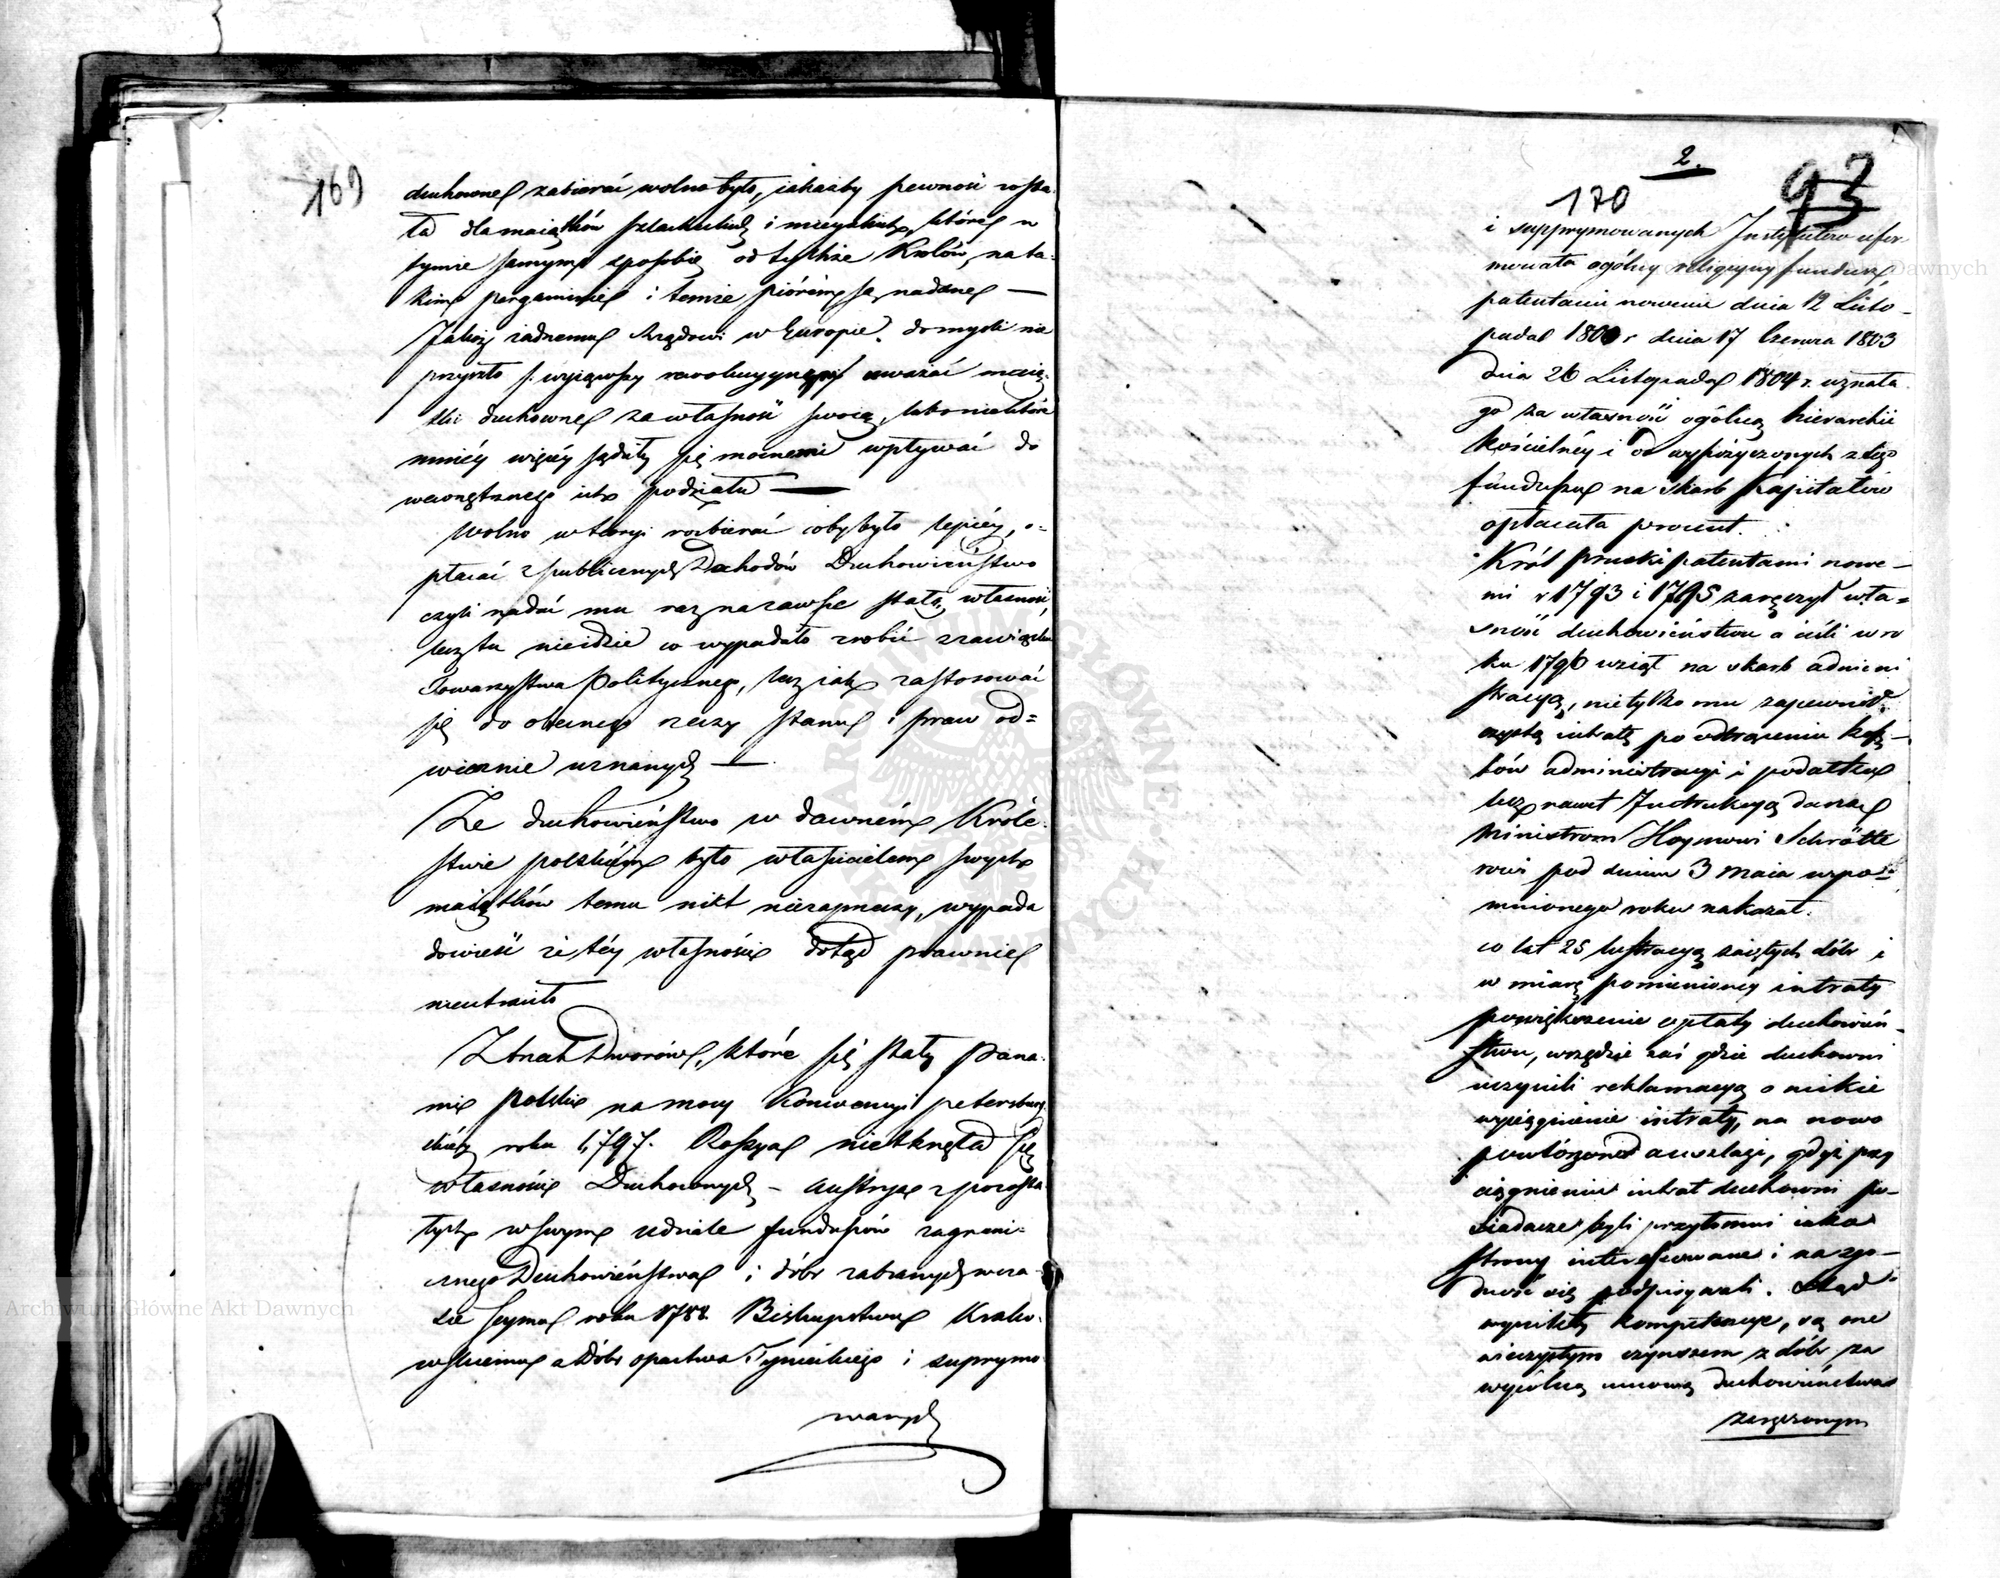 169
duchowne zabierać wolno było, iakażby pewność zosta-
ła dla maiątków szlacheckich i mieyskich, które w
tymże samym sposobie od tychże Królów, na ta-
kimż pergaminie i temże piórem są nadane —
Jakoż żadnemu Rządowi w Europie do myśli nie
przyszło /: wyiąwszy rewolucyyny uważać maią-
tki duchowne za własność swoią, lubo niektóre
mniéy więcéy sądziły się mocnemi wpływać do
wewnętrznego ich podziału —
Wolno w teoryi rozbierać coby było lepiéy, o-
płacać z publicznych Dochodów Duchowieństwo
czyli nadać mu raz na zawsze stałą własność,
lecz tu nieidzie co wypadało zrobić z zawiązku
Towarzystwa Politycznego, lecz iak zastosować
się do obecnego rzeczy stanu i praw od-
wiecznie uznanych —
Że duchowieństwo w dawném Króle-
stwie polskim było właścicielem swych
maiątków temu nikt niezaprzeczy, wypada
dowieść że téy własności dotąd prawnie
nieutraciło
Z trzech Dworów, które się stały Pana-
mi Polski na mocy Konwencyi petersburg-
skiéy roku 1797. Rossya nietknęła się
własności Duchownych – Austrya z pozosta-
łych w swym udziale funduszów zagrani-
cznego Duchowieństwa i dóbr zabranych w cza-
sie seymu roku 1788. Biskupstwu Krako-
wskiemu a Dóbr opactwa Tynieckiego i suprymo-
wanych
2.
170
93
i supprymowanych Instytutów ufor
mowała ogólny religiyny fundusz
patentami nowemi dnia 12 Listo-
pada 1800 r dnia 17 Czerwca 1803
dnia 26 Listopada 1804 r. uznała
go za własność ogólną hierarchii
Kościelnéy i od wypożyczonych z tego
funduszu na skarb Kapitałów
opłacała procent.
Król pruski patentami nowe-
mi r 1793 i 1795 zaręczył wła-
sność duchowieństwu a ieśli w ro
ku 1796 wziął na skarb admini
stracyą, nietylko mu zapewnił
czystą intratę po odtrąceniu kosz-
tów administracyi i podatku
lecz nawet Instrukcyą daną
Ministrom Hoymowi Schrötte
rowi pod dniem 3 maia wspo-
mnionego roku nakazał.
co lat 25 lustracyą zaiętych dóbr i
w miarę pomienionéy intraty
powiększenie opłaty duchowień-
stwu, wszędzie zaś gdzie duchowni
uczynili reklamacyą o nizkie
wyciągnienie intraty, na nowo
powtórzono anszlagi, gdyż przy
ciągnieniu intrat duchowni po-
siadacze byli przytomni iako
strony interessowane i na zgo-
dność się podpisywali. Ztąd
wynikłe kompetencye, są one
wieczystym czynszem z dóbr za
wspólną umową duchowieństwa
zaręczonym